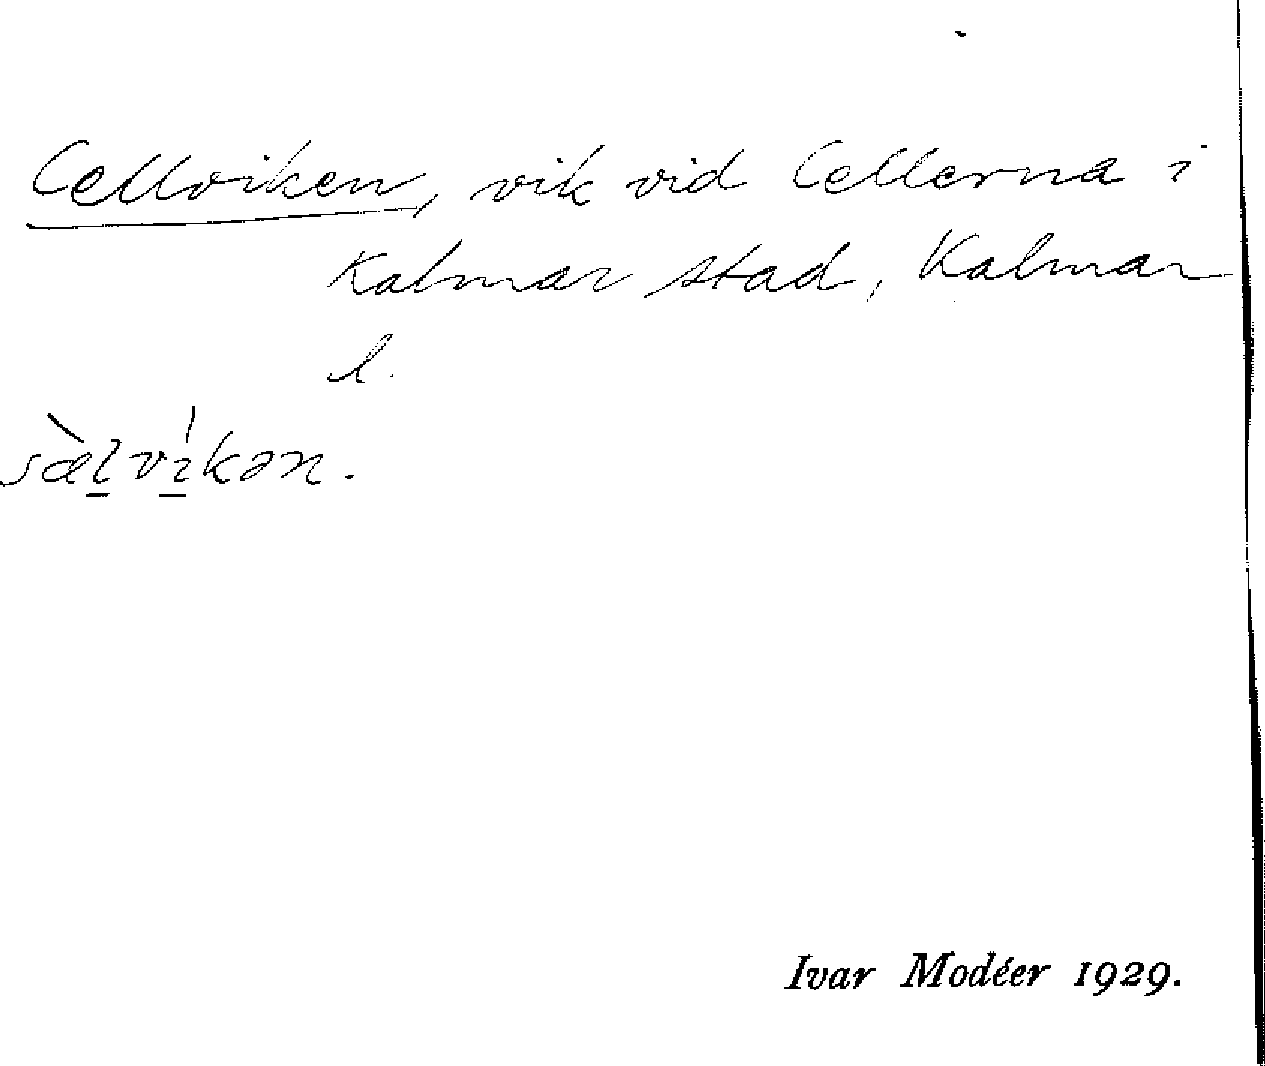 Cellviken, vik vid Cellerna i
Kalmar stad, Kalmar
l.
sæ̀l̲vı̲́kən.
Ivar Modéer 1929.